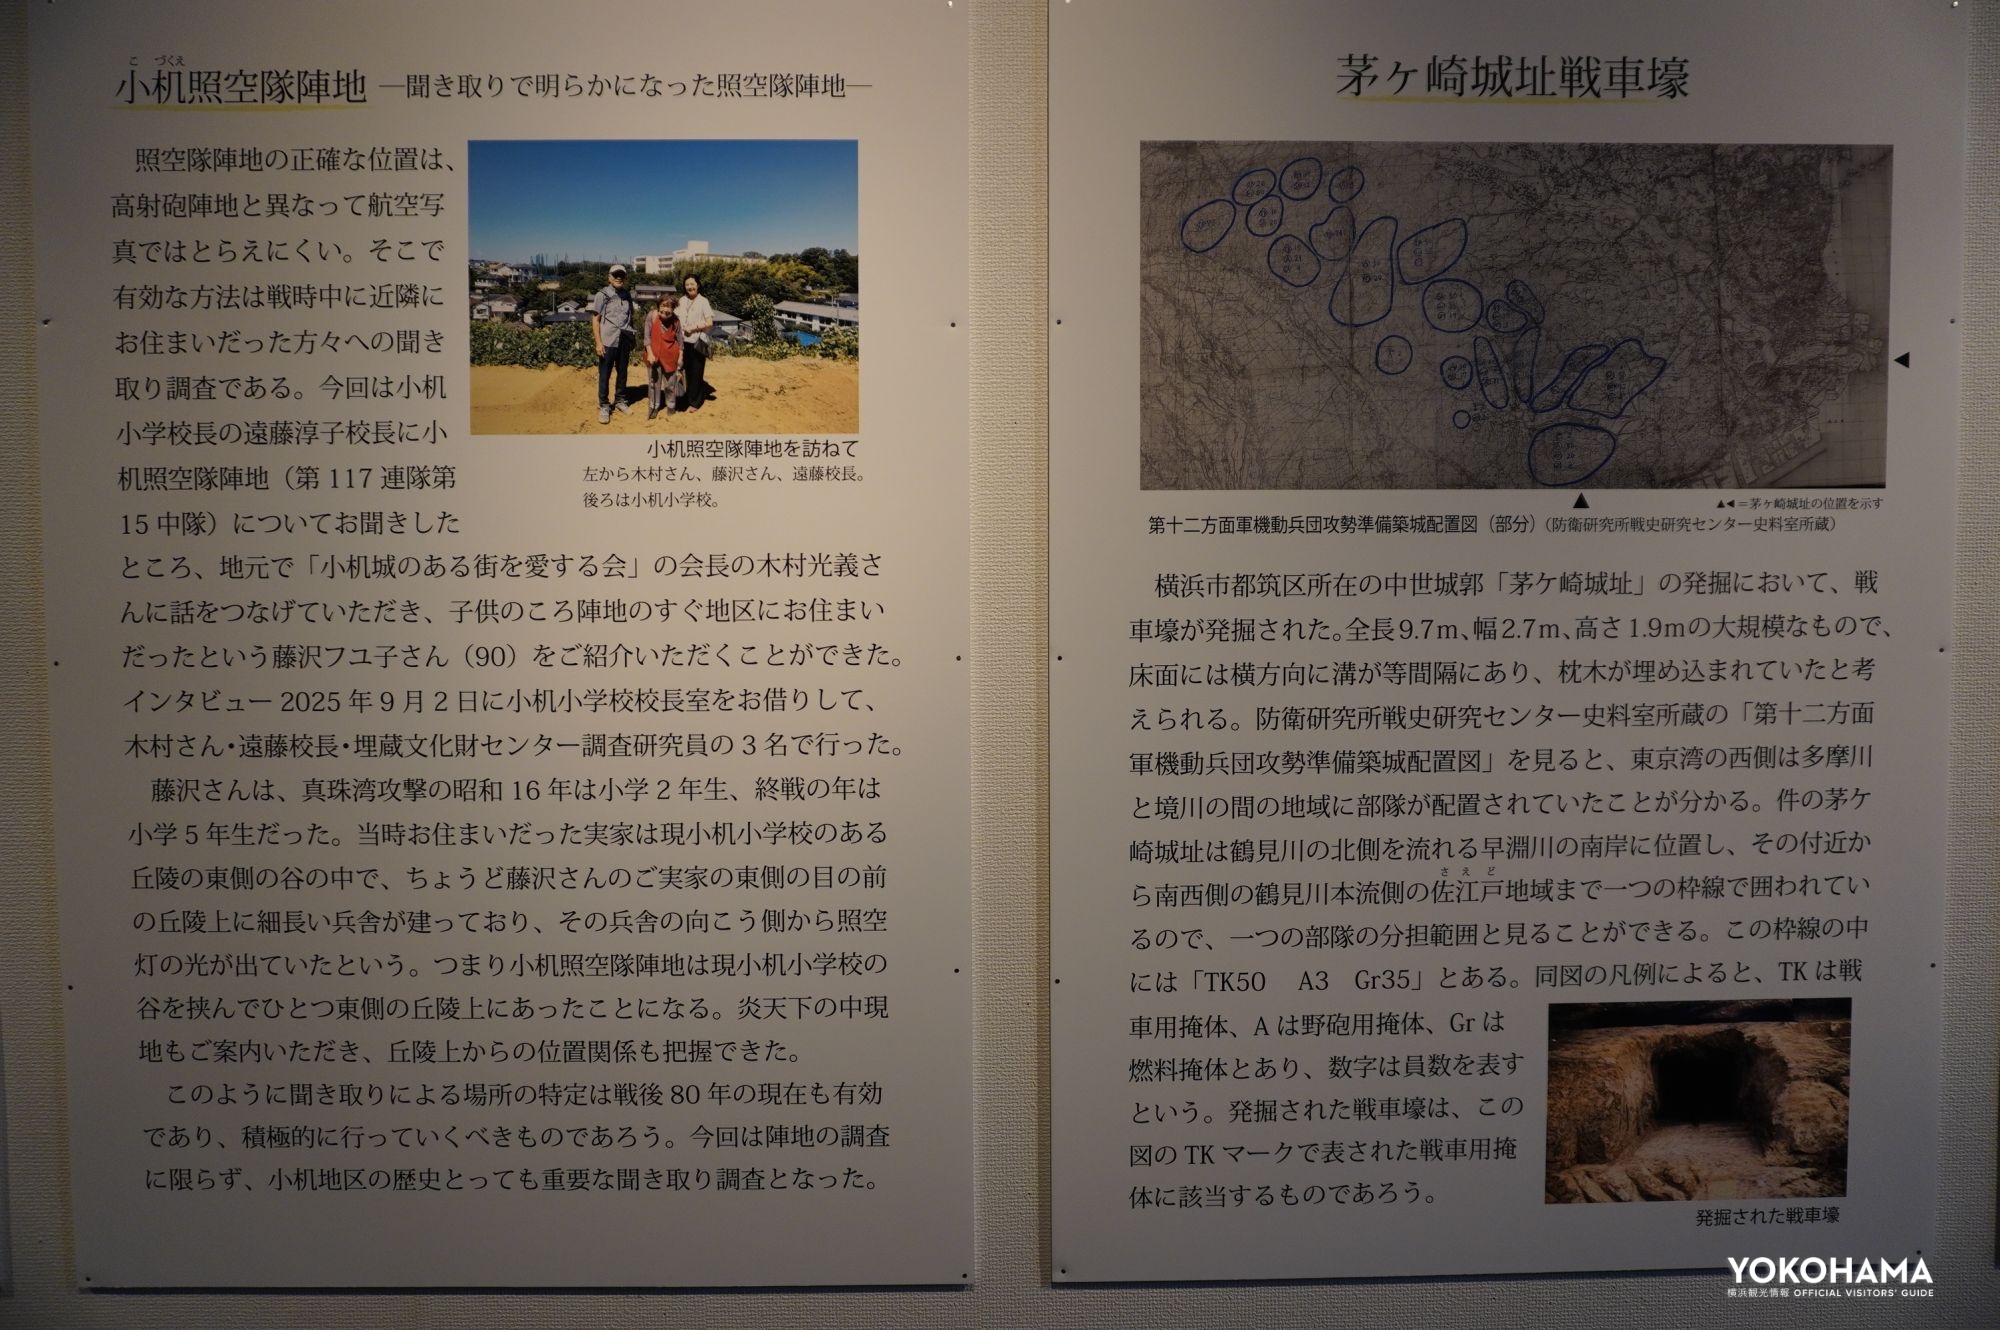 小机照空隊陣地 ―聞き取りで明らかになった照空隊陣地―
こ づくえ
照空隊陣地の正確な位置は、
高射砲陣地と異なって航空写
真ではとらえにくい。そこで
有効な方法は戦時中に近隣に
お住まいだった方々への聞き
取り調査である。今回は小机
小学校長の遠藤淳子校長に小
机照空隊陣地（第 117 連隊第
15 中隊）についてお聞きした
ところ、地元で「小机城のある街を愛する会」の会長の木村光義さ
んに話をつなげていただき、子供のころ陣地のすぐ地区にお住まい
だったという藤沢フユ子さん（90）をご紹介いただくことができた。
インタビュー 2025 年 9 月 2 日に小机小学校校長室をお借りして、
木村さん・遠藤校長・埋蔵文化財センター調査研究員の 3 名で行った。
藤沢さんは、真珠湾攻撃の昭和 16 年は小学 2 年生、終戦の年は
小学 5 年生だった。当時お住まいだった実家は現小机小学校のある
丘陵の東側の谷の中で、ちょうど藤沢さんのご実家の東側の目の前
の丘陵上に細長い兵舎が建っており、その兵舎の向こう側から照空
灯の光が出ていたという。つまり小机照空隊陣地は現小机小学校の
谷を挟んでひとつ東側の丘陵上にあったことになる。炎天下の中現
地もご案内いただき、丘陵上からの位置関係も把握できた。
このように聞き取りによる場所の特定は戦後 80 年の現在も有効
であり、積極的に行っていくべきものであろう。今回は陣地の調査
に限らず、小机地区の歴史とっても重要な聞き取り調査となった。
小机照空隊陣地を訪ねて
左から木村さん、藤沢さん、遠藤校長。
後ろは小机小学校。
茅ヶ崎城址戦車壕
▲◀＝茅ヶ崎城址の位置を示す
第十二方面軍機動兵団攻勢準備築城配置図（部分）（防衛研究所戦史研究センター史料室所蔵）
横浜市都筑区所在の中世城郭「茅ケ崎城址」の発掘において、戦
車壕が発掘された。全長 9.7m、幅 2.7m、高さ 1.9mの大規模なもので、
床面には横方向に溝が等間隔にあり、枕木が埋め込まれていたと考
えられる。防衛研究所戦史研究センター史料室所蔵の「第十二方面
軍機動兵団攻勢準備築城配置図」を見ると、東京湾の西側は多摩川
と境川の間の地域に部隊が配置されていたことが分かる。件の茅ケ
崎城址は鶴見川の北側を流れる早淵川の南岸に位置し、その付近か
ら南西側の鶴見川本流側の佐江戸地域まで一つの枠線で囲われてい
さ え ど
るので、一つの部隊の分担範囲と見ることができる。この枠線の中
には「TK50 A3 Gr35」とある。同図の凡例によると、TK は戦
車用掩体、A は野砲用掩体、Gr は
燃料掩体とあり、数字は員数を表す
という。発掘された戦車壕は、この
図の TK マークで表された戦車用掩
体に該当するものであろう。
発掘された戦車壕
YOKOHAMA
横浜観光情報 OFFICIAL VISITORS' GUIDE